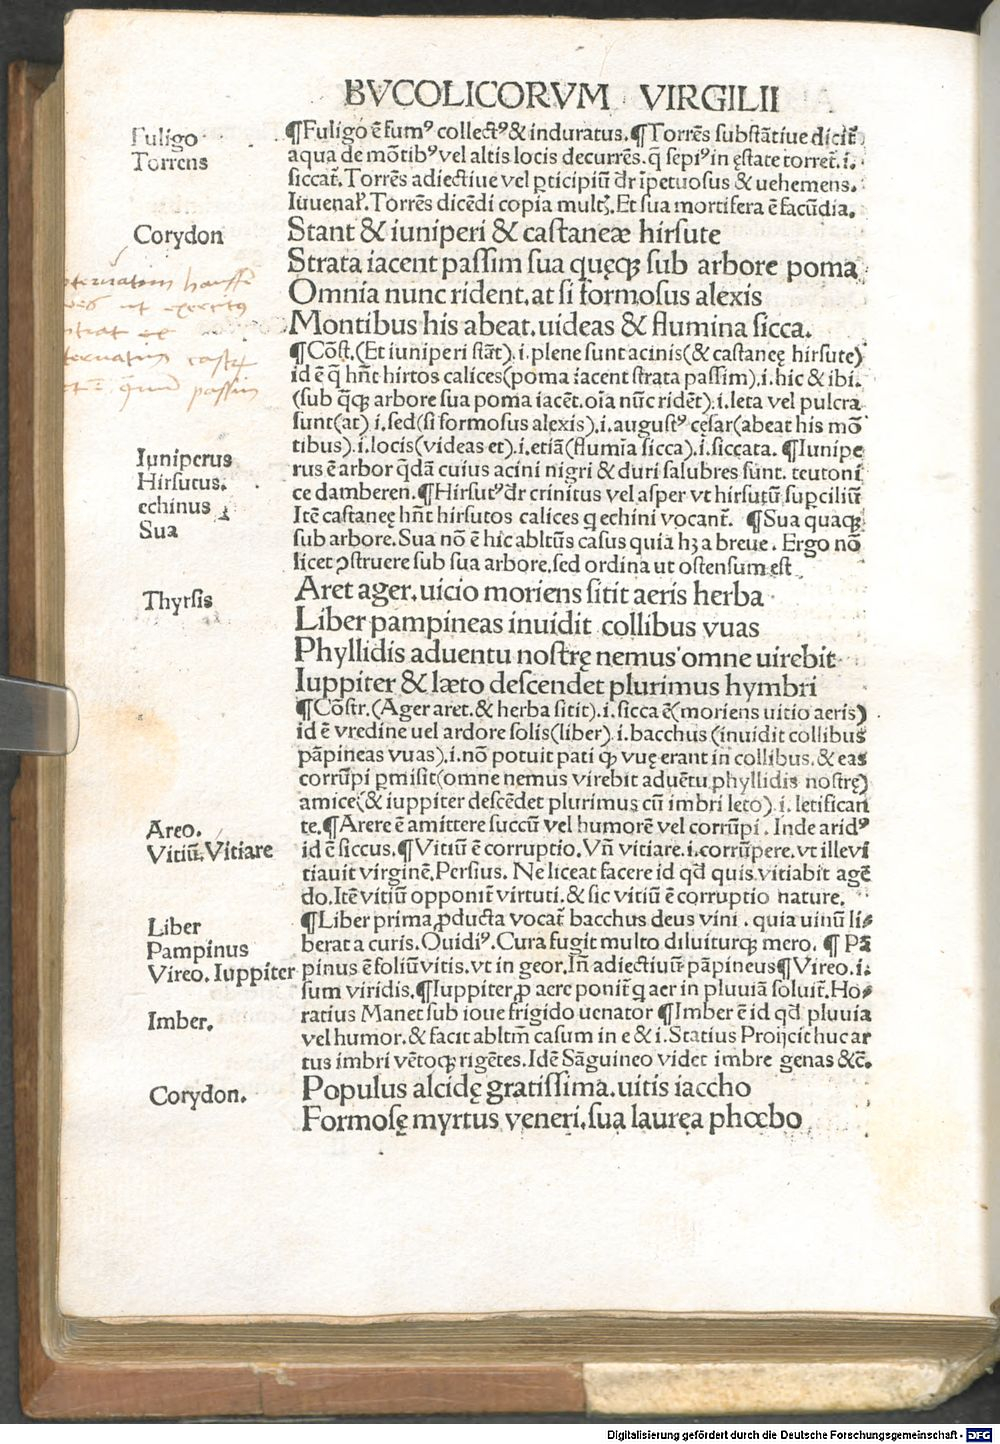 BVCOLICORVM VIRGILII
Fuligo
Torrens
¶Fuligo ē fumꝰ collectꝰ & induratus. ¶Torrēs substātiue dicit̄
aqua de mōtibꝰ vel altis locis decurrēs. q̄ sepiꝰ in ęstate torret̄. i.
siccat̄. Torrēs adiectiue vel ꝑticipiū dr̄ īpetuosus & uehemens.
Iuuenaꝉ. Torrēs dicēdi copia multꝫ. Et sua mortifera ē facūdia.
Corydon
Stant & iuniperi & castaneæ hirsute
Strata iacent passim sua quęqꝫ sub arbore poma
Omnia nunc rident. at si formosus alexis
Montibus his abeat. uideas & flumina sicca.
ut exercitus
castra
passim
¶Cōst. (Et iuniperi stāt). i. plene sunt acinis (& castaneę hirsute)
id ē q̄ hn̄t hirtos calices (poma iacent strata passim). i. hic & ibi.
(sub q̄qꝫ arbore sua poma iacēt. oīa nūc ridēt). i. leta vel pulcra
sunt (at) i. sed (si formosus alexis). i. augustꝰ cęsar (abeat his mō
tibus). i. locis (videas et). i. etiā (flumīa sicca). i. siccata. ¶Iunipe
rus ē arbor q̄dā cuius acini nigri & duri salubres sunt. teutoni
ce damberen. ¶Hirsutꝰ dr̄ crinitus vel asper vt hirsutū suꝑciliū
Itē castaneę hn̄t hirsutos calices q echini vocant̄. ¶Sua quaqꝫ
sub arbore. Sua nō ē hic abltūs casus quia hꝫ a breue. Ergo nō
licet ꝯstruere sub sua arbore. sed ordina ut ostensum est
Iuniperus
Hirsutus.
echinus
Sua
Thyrsis
Aret ager. uicio moriens sitit aeris herba
Liber pampineas inuidit collibus vuas
Phyllidis aduentu nostrę nemus omne uirebit
Iuppiter & læto descendet plurimus hymbri
¶Cōstr. (Ager aret. & herba sitit). i. sicca ē (moriens uitio aeris)
id ē vredine uel ardore solis (liber) . i. bacchus (inuidit collibus
pāpineas vuas). i. nō potuit pati qꝫ vuę erant in collibus. & eas
corrūpi ꝑmisit (omne nemus virebit aduētu phyllidis nostrę)
amice (& iuppiter descēdet plurimus cū imbri leto) . i. letifican
te. ¶Arere ē amittere succū vel humorē vel corrūpi . Inde aridꝰ
id ē siccus. ¶Vitiū ē corruptio. Vn̄ vitiare. i. corrūpere. vt ille vi
tiauit virginē. Persius. Ne liceat facere id qd̄ quis vitiabit agē
do. Itē vitiū opponit̄ virtuti. & sic vitiū ē corruptio nature.
¶Liber prima ꝓducta vocat̄ bacchus deus vini . quia uinū li-
berat a curis. Ouidiꝰ. Cura fugit multo diluiturqꝫ mero. ¶ Pā
pinus ē foliū vitis. vt in geor. In̄ adiectiuū pāpineus ¶Vireo. i.
sum viridis. ¶Iuppiter ꝓ aere ponit̄ q aer in pluuiā soluit̄. Ho-
ratius Manet sub ioue frigido uenator ¶Imber ē id qd̄ pluuia
vel humor. & facit abltm̄ casum in e & i. Statius Proijcit huc ar
tus imbri vētoqꝫ rigētes. Idē Sāguineo videt imbre genas &c̄.
Areo.
Vitiū. Vitiare
Liber
Pampinus
Vireo. Iuppiter
Imber.
Corydon.
Populus alcidę gratissima. uitis iaccho
Formosę myrtus veneri. sua laurea phœbo
Digitalisierung gefördert durch die Deutsche Forschungsgemeinschaft - DFG